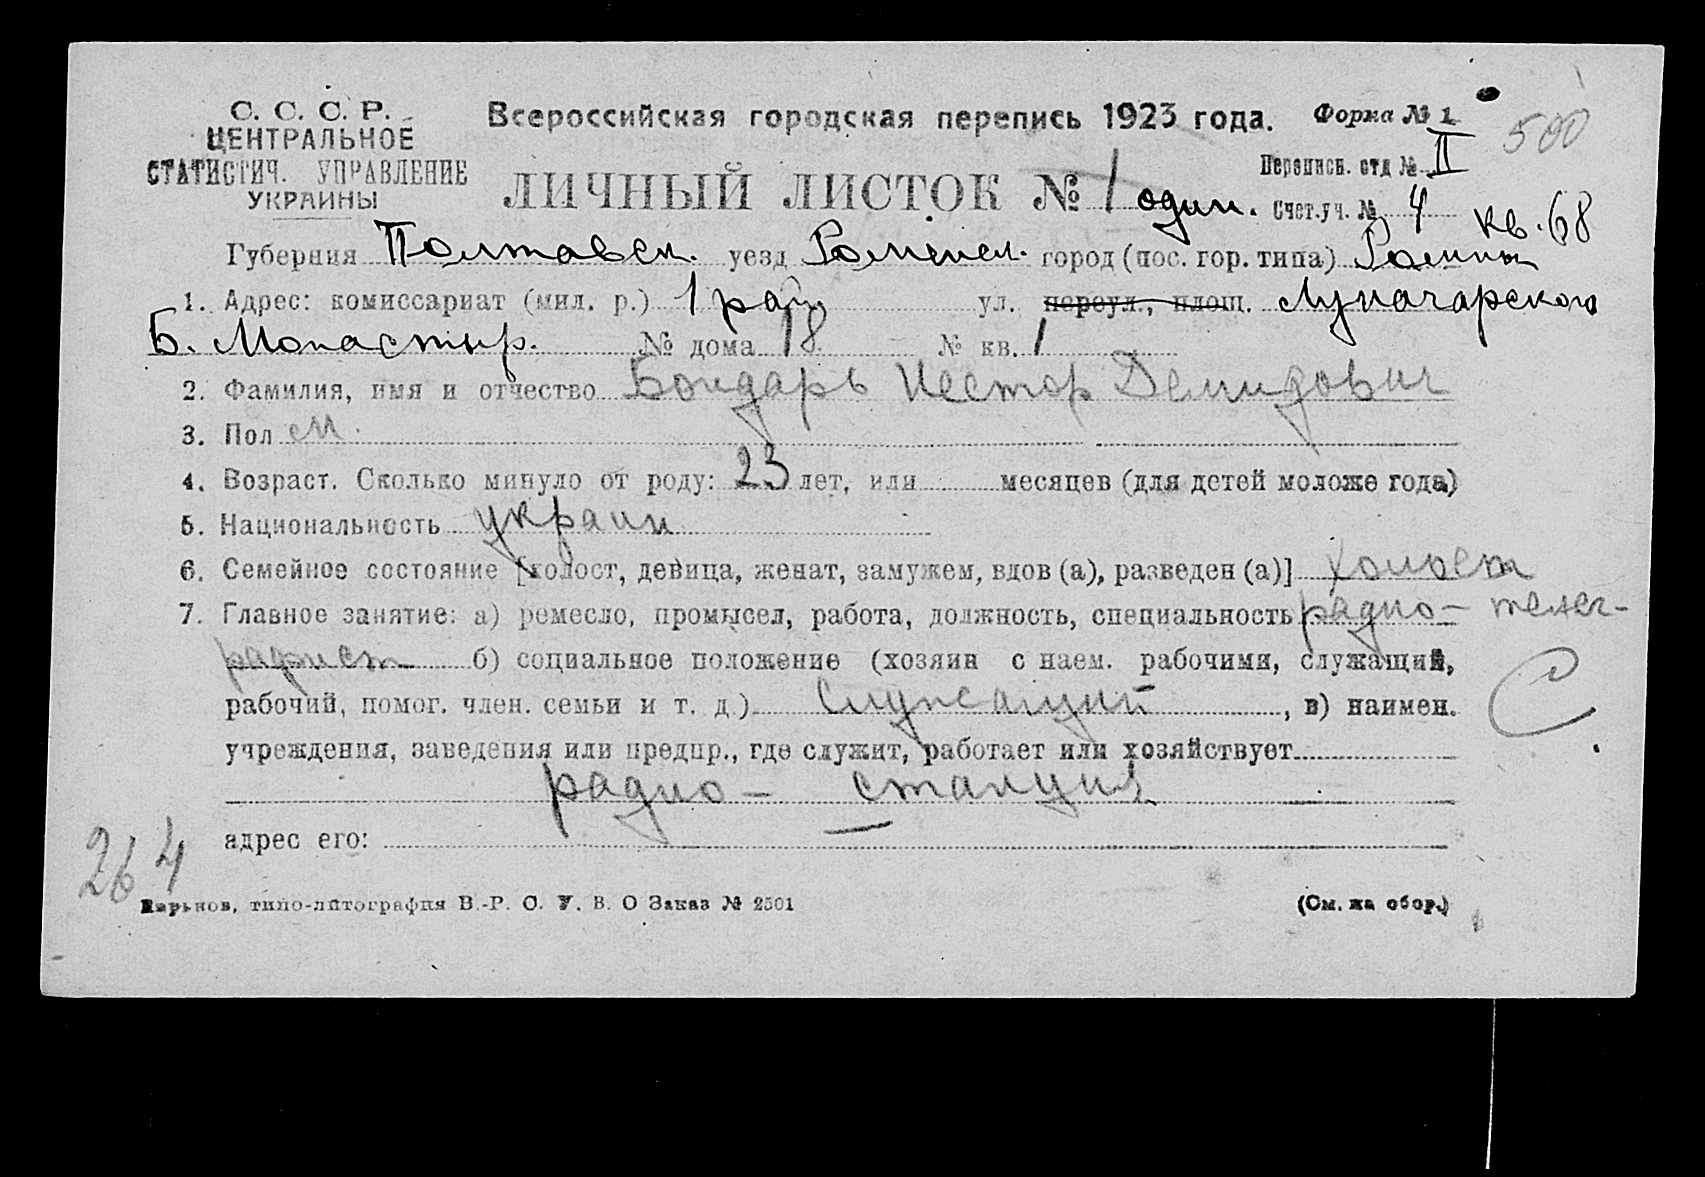 С. С. С. Р.
ЦЕНТРАЛЬНОЕ
СТАТИСТИЧ. УПРАВЛЕНИЕ
УКРАИНЫ
Всероссийская городская перепись 1923 года. Форма № 1
500
ЛИЧНЫЙ ЛИСТОК № 1 один.
Перепись. отд № II
Счет.уч. № 4 кв. 68
Губерния Полтавск. уезд Роменск. город (пос. гор. типа) Ромны
1. Адрес: комиссариат (мил. р.) 1 рай ул. переул., площ. Луначарского
Б. Монастыр. № дома 18 № кв. 1
2. Фамилия, имя и отчество Бондарь Нестор Демидович
3. Пол м.
4. Возраст. Сколько минуло от роду: 23 лет, или месяцев (для детей моложе года)
5. Национальность украин
6. Семейное состояние [холост, девица, женат, замужем, вдов (а), разведен (а)] холост
7. Главное занятие: а) ремесло, промысел, работа, должность, специальность радио - телег-
рафист б) социальное положение (хозяин с наем. рабочими, служащий,
рабочий, помог. член. семьи и т. д.) Служащий, в) наимен.
С
учреждения, заведения или предпр., где служит, работает или хозяйствует
радио - станция
адрес его:
264
Харьков, типо-литография В.-Р. С. У. В. О Заказ № 2501 (См. на обор.)